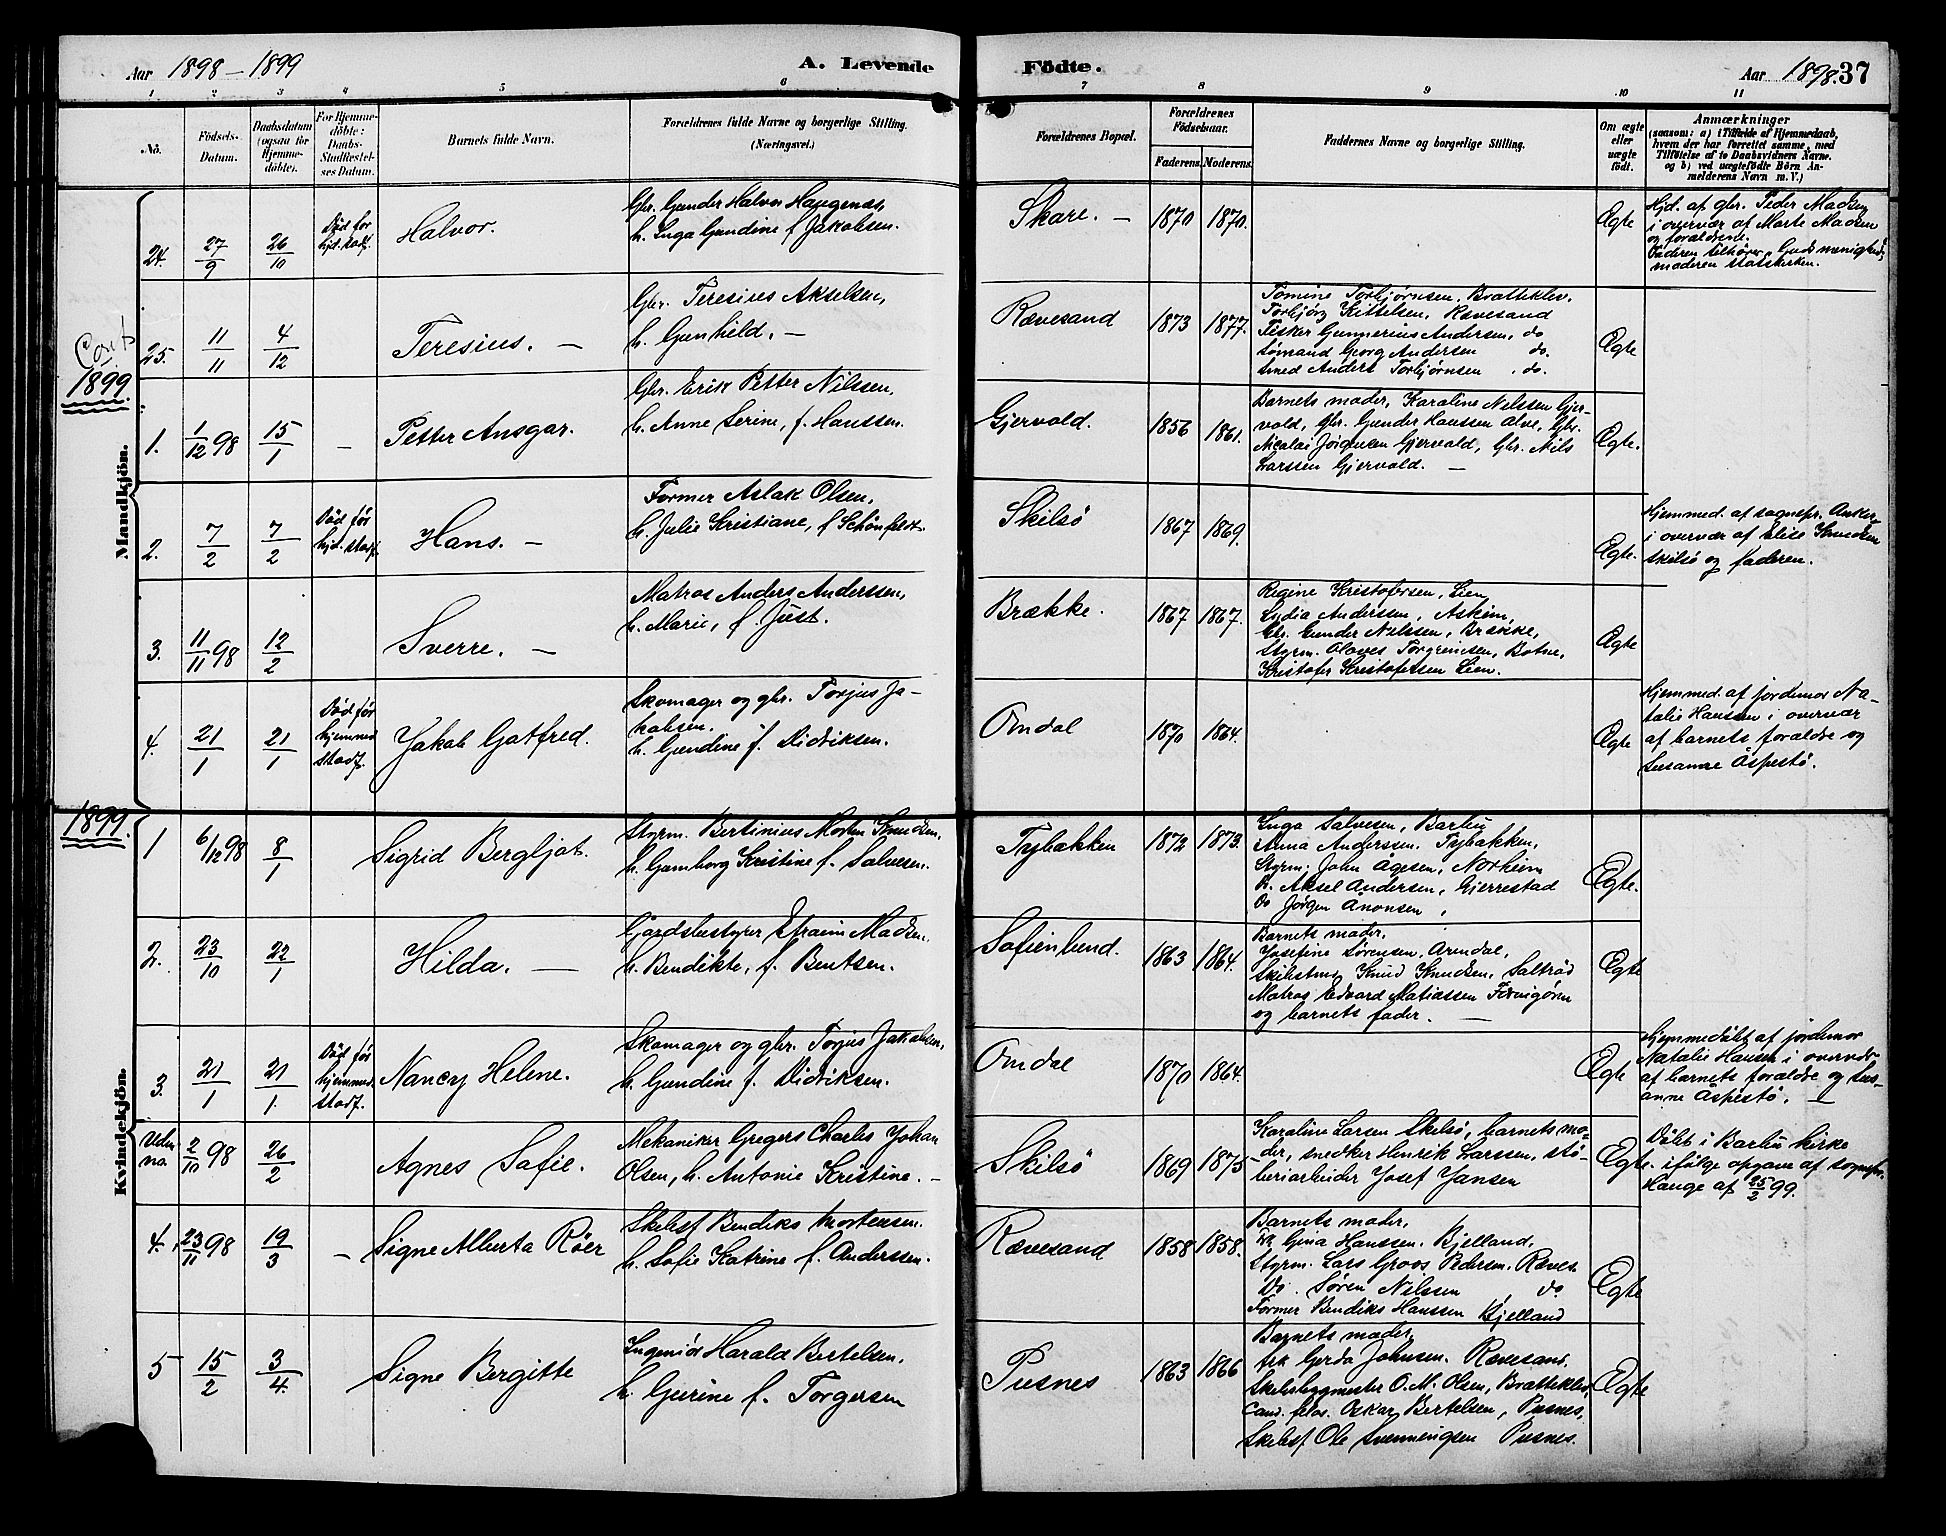 Aar 1898-1899
A. Levende
Födte.
Aar 1898. 37
1 2 3 4 5 6 7 8 9 10 11
No.
Födsels-
Datum.
Daabsdatum
(ogsaa for
Hjemme-
döbte).
For Hjemme-
döbte:
Daabs-
Stadfæstel-
ses Datum.
Barnets fulde Navn.
Forældrenes fulde Navne og borgerlige Stilling.
(Næringsvei.)
Forældrenes Bopæl.
Forældrenes
Födselsaar.
Faderens. Moderens.
Faddernes Navne og borgerlige Stilling.
Om ægte
eller
uægte
födt.
Anmærkninger
(saasom: a) i Tilfælde af Hjemmedaab,
hvem der har forrettet samme, med
Tilföielse af to Daabsvidners Navne.
og b) ved uægtefödte Börn An-
melderens Navn m. V.)
Mandkjön.
24. 27/9 26/10
Död for
hjd. stadf.
Halvor.
Gbr. Gunder Halvor Haugenæs,
h. Inga Gundine f. Jakobsen.
Skare. — 1870 1870. Ægte
Hjd. af gbr. Peder Madsen
i overvær af Marte Madsen
og forældrene.
Faderen tilhører Guds menighed,
moderen statskirken.
25. 11/11 4/12 Teresius. —
Gbr. Teresius Akselsen,
h. Gunhild. —
Rævesand 1873 1877.
Tomine Torbjørnsen, Bratteklev.
Torbjørg Kittelsen, Rævesand
Fisker Gunnerius Andersen, do
Sømand Georg Andersen do.
Smed Anders Torbjørnsen, do.
Ægte
1899.
1. 1/12 98 15/1 — Petter Ansgar.
Gbr. Erik Petter Nilssen,
h. Anne Serine, f. Hanssen.
Gjervold. 1856 1861.
Barnets moder, Karoline Nilssen Gjer-
vold, Gbr. Gunder Hanssen Alve, Gbr.
Nicolai Jörgensen Gjervold, Gbr. Nils
Larssen Gjervold. —
Ægte.
2. 7/2 7/2
Död før
hjd. stadf.
Hans. —
Former Aslak Olsen,
h. Julie Kristiane, f. Schönfeldt.
Skilsö 1867 1869. Ægte.
Hjemmed. af sognepr. Anker
i overvær af Elise Knudsen
Skilsö og faderen.
3. 11/11 98 12/2 Sverre. —
Matros Anders Anderssen,
h. Marie, f. Just.
Brække. 1867 1867.
Regine Kristofersen, Lien,
Lydia Andersen, Askim,
Gbr. Gunder Nilssen, Brække,
Styrm. Olaves Torgrimsen, Botne,
Kristofer Kristofersen Lien.
Ægte
4. 21/1 21/1
Död før
hjemmed.
stadf.
Jakob Gotfred.
Skomager og gbr. Torjus Ja-
kobsen.
h. Gundine f. Didriksen.
Omdal 1870 1864. Ægte
Hjemmed. af jordemor Na-
talie Hansen i overvær
af barnets forældre og
Susanne Aspestö.
Kvindekjön.
1899.
1 6/12 98 8/1 Sigrid Bergljot.
Styrm. Bertinius Morten Knudsen,
h. Gunborg Kristine f. Salvesen.
Tybakken 1872 1873.
Inga Salvesen, Barbu
Anna Anderssen, Tybakken,
Styrm. John Ågesen, Norheim
Aksel Andersen, Gjerrestad
Do Jørgen Anonsen,
Ægte.
2. 23/10 22/1 Hilda. —
Gaardsbestyrer Efraim Madsen.
h. Bendikte, f. Bentsen.
Sofienlund. 1863 1864.
Barnets moder,
Josefine Sørensen, Arendal,
Skibstm. Knud Knudsen, Saltröd
Matros Edvard Matiassen
og barnets fader. —
Ægte
3. 21/1 21/1.
Död før
hjemmed.
stadf.
Nancy Helene.
Skomager og gbr. Torjus Jakobsen,
h. Gundine f. Didriksen.
Omdal 1870 1864. Ægte
Hjemmedöbt af jordemor
Natalie Hansen i overvær
af barnets forældre og Sus-
anne Aspestö. —
Uden
no. 2/10 98 26/2 Agnes Sofie.
Mekaniker Gregers Charles Johan
Olsen, h. Antonie Kristine. —
Skilsö 1869 1875
Karoline Larsen Skilsö, barnets mo-
der, snedker Henrik Larssen, stö-
beriarbeider Josef Jansen
Ægte.
Döbt i Barbu kirke
ifölge opgave af sognepr.
Hauge af 25/2 99.
4. 23/11 98 19/3 — Signe Alberta Röer
Skibsf Bendiks Mortensen.
h. Sofie Katrine f. Anderssen.
Rævesand 1858 1858.
Barnets moder,
Gina Hanssen. Bjelland,
Styrm. Lars Groos Pedersen, Ræves.
Do. Søren Nilssen, do
Former Bendiks Hanssen Bjelland
Ægte
5 15/2 3/4. Signe Bergitte
Ingeniör Harald Bertelsen.
h. Gurine f. Torgersen
Pusnes 1863 1866
Barnets moder,
frk Gerda Johnsen. Rævesand.
Skibsbygmester O. M. Olsen, Bratteklev,
Cand. filos. Oskar Bertelsen, Pusnes,
Skibsf Ole Svenningsen Pusnes.
Ægte